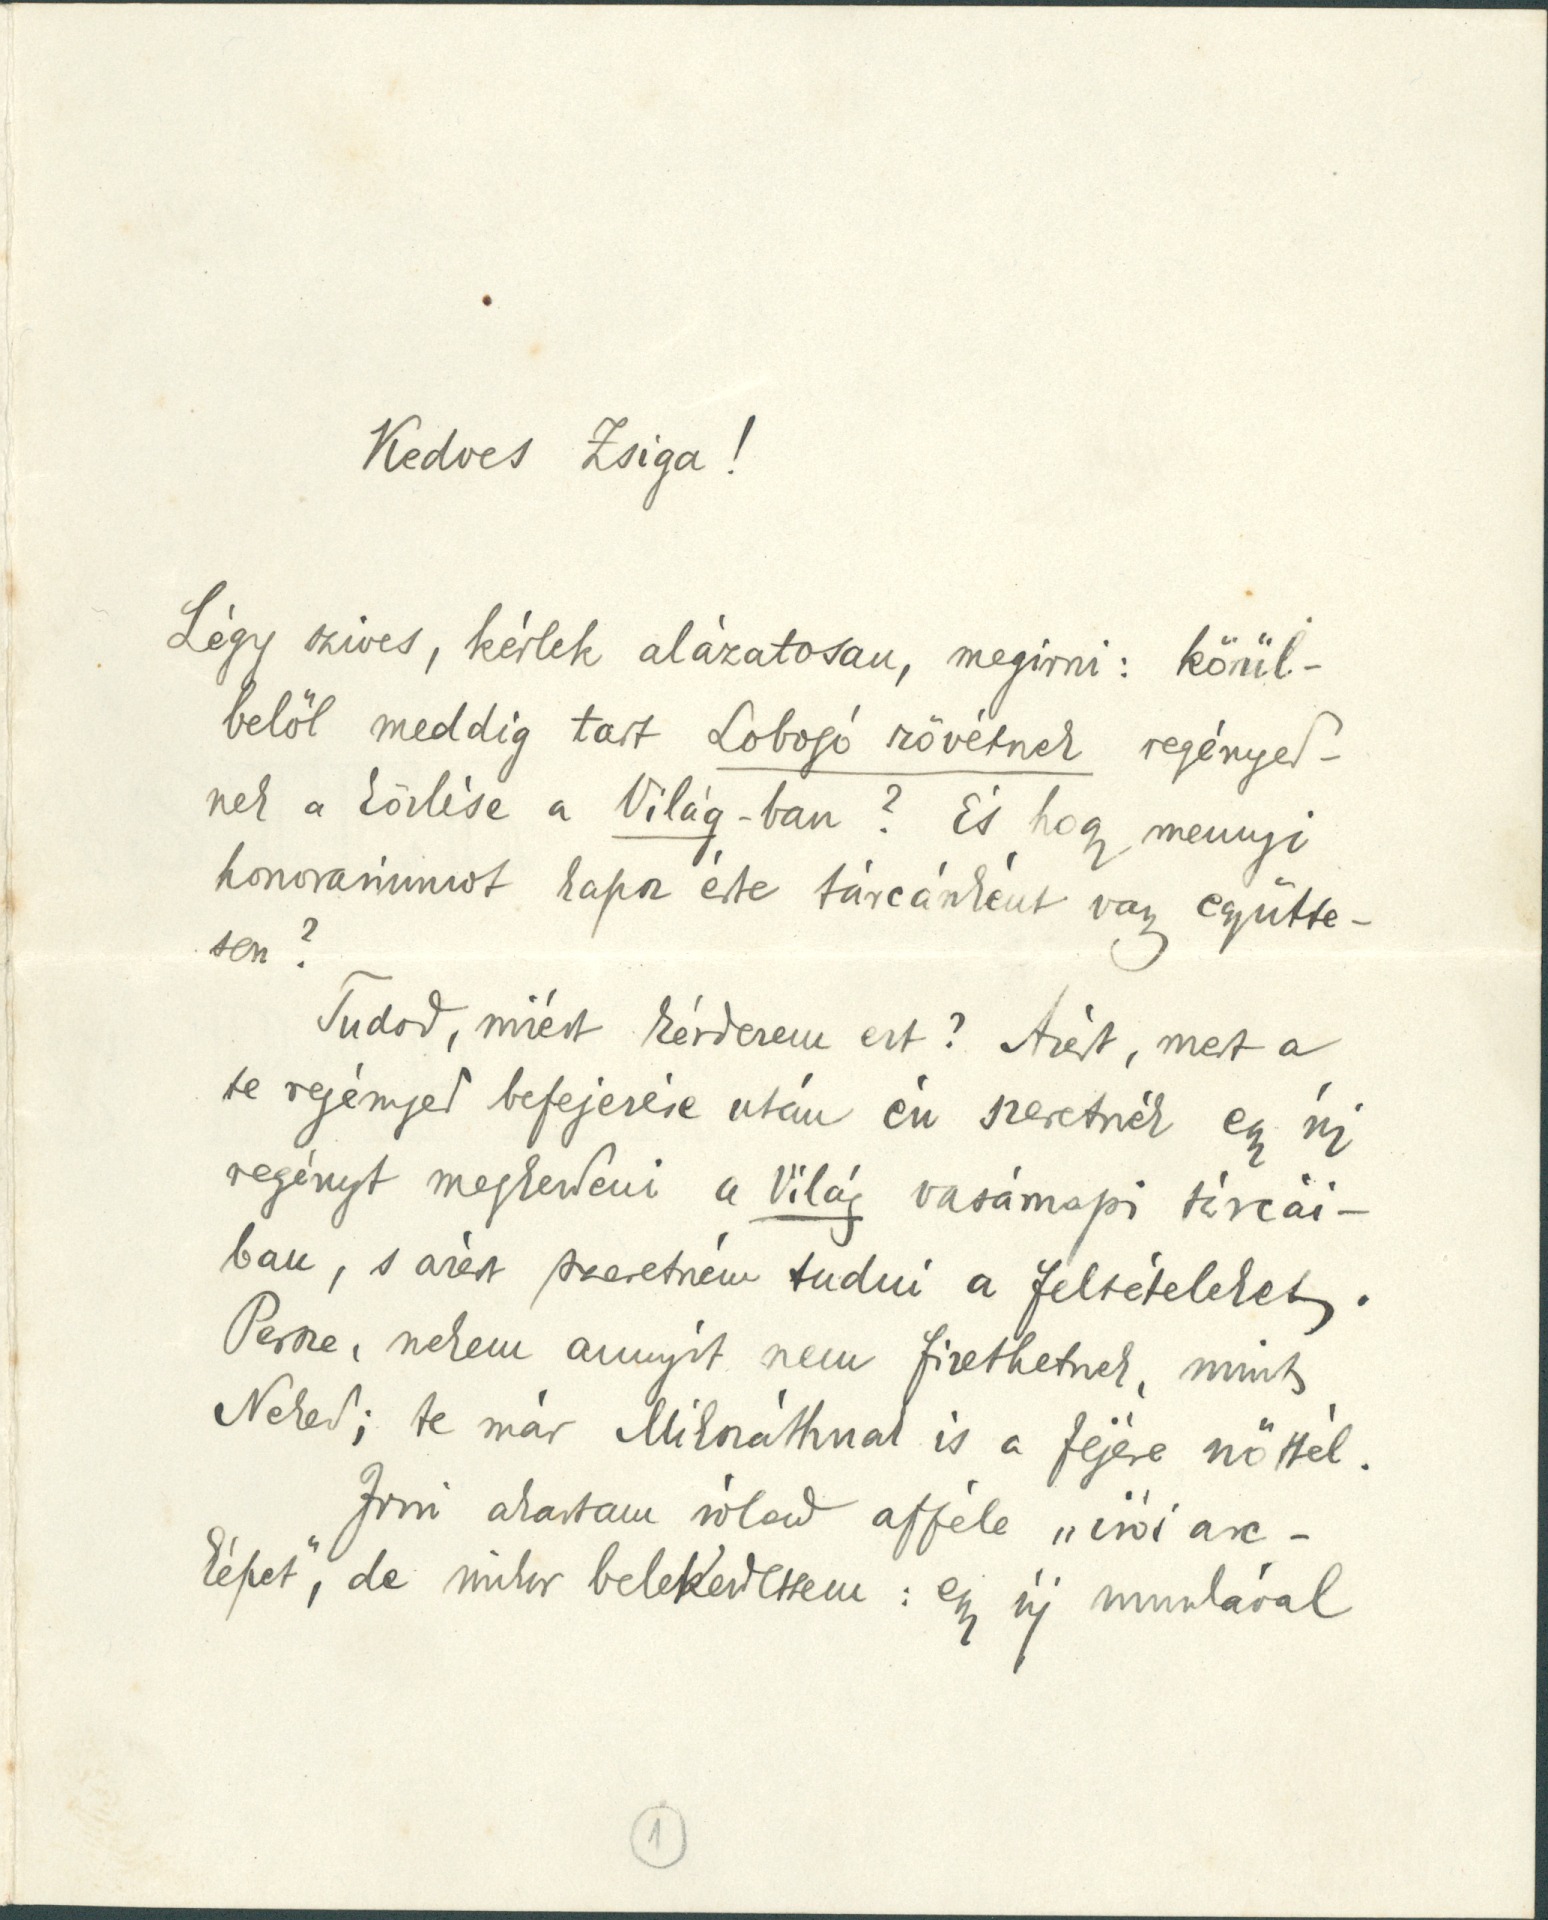 Kedves Zsiga!
Légy szives, kérlek alázatosan, megirni: körül-
belöl meddig tart Lobogó szövétnek regényed-
nek a közlése a Világ-ban? És hogy mennyi
honorariumot kapsz érte tárcánként vagy együtte-
sen?
Tudod, miért kérdezem ezt? Azért, mert a
te regényed befejezése után én szeretnék egy új
regényt megkezdeni a Világ vasárnapi tárcái-
ban, s azért szeretném tudni a feltételeket.
Persze, nekem annyit nem fizethetnek, mint
Neked; te már Mikszáthnak is a fejére nőttél.
Irni akartam rólad afféle „irói arc-
képet", de mikor belekezdettem: egy új munkával
1